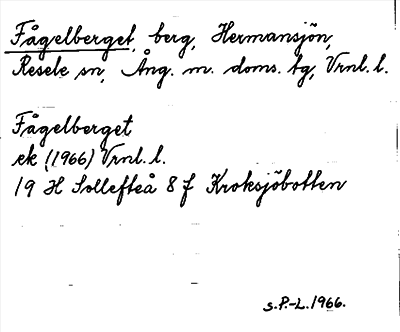 Fågelberget, berg, Hermansjön,
Resele sn, Ång. m. doms. tg, Vrnl. l.
Fågelberget
ek (1966) Vrnl. l.
19 H Sollefteå 8 f Kroksjöbotten
s.P.-L. 1966.